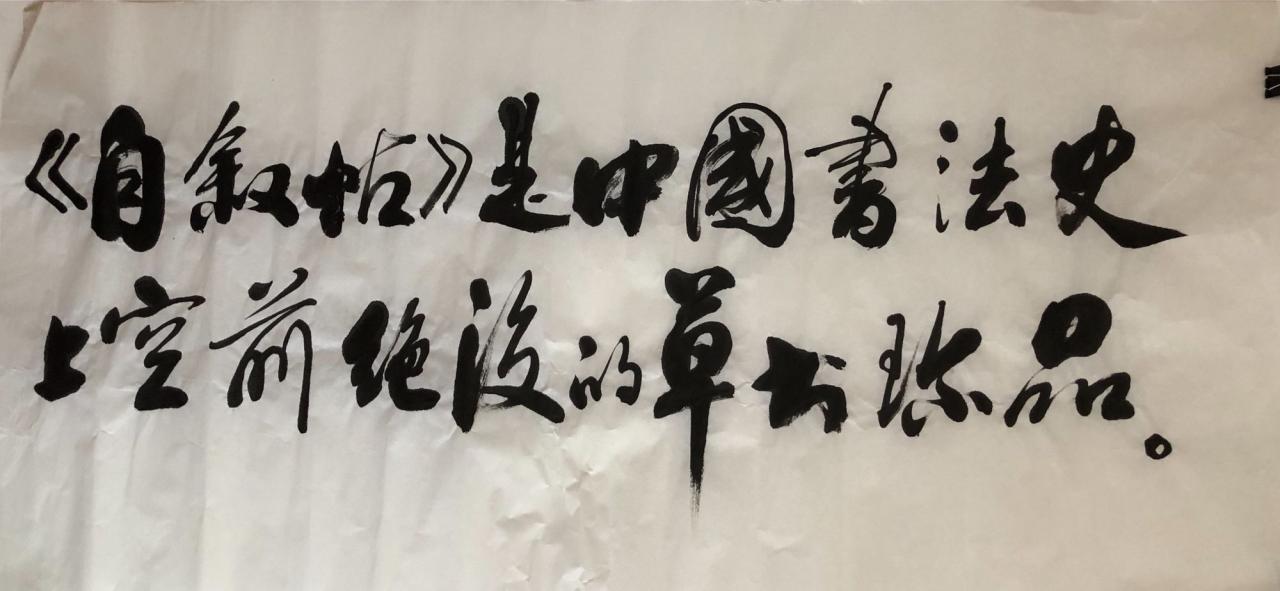 《自叙帖》是中國書法史
上空前绝後的草书珍品。